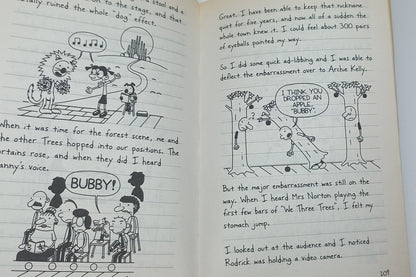 a stool and a
on to the stage, and that
ally ruined the whole "dog" effect.
When it was time for the forest scene, me and
the other Trees hopped into our positions. The
rtains rose, and when they did I heard
anny's voice.
BUBBY!
Great. I have been able to keep that nickname
quiet for five years, and now all of a sudden the
whole town knew it. I could feel about 300 pairs
of eyeballs pointed my way.
So I did some quick ad-libbing and I was able to
deflect the embarrassment over to Archie Kelly.
I THINK YOU
DROPPED AN
APPLE,
"BUBBY".
But the major embarrassment was still on the
way. When I heard Mrs Norton playing the
first few bars of "We Three Trees", I felt my
stomach jump.
I looked out at the audience and I noticed
Rodrick was holding a video camera.
109